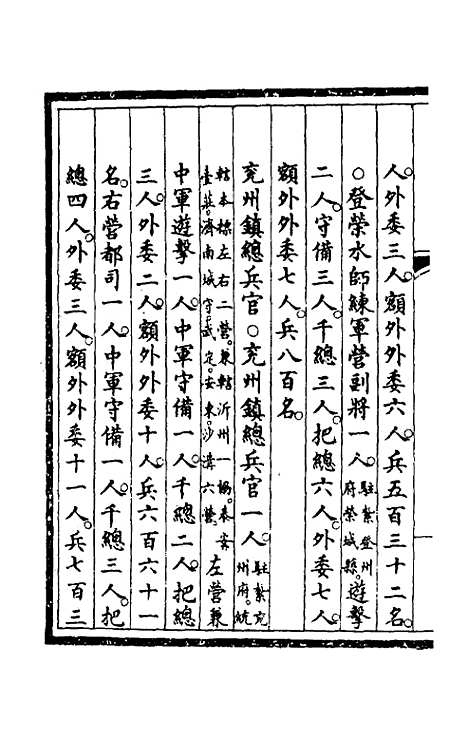 人。外委三人。額外外委六人。兵五百三十二名。
○登榮水師練軍營副將一人。駐紮登州府榮城縣。遊擊
二人。守備三人。千總三人。把總六人。外委七人。
額外外委七人。兵八百名。
兗州鎮總兵官○兗州鎮總兵官一人。駐紮兗州府。統
轄本標左右二營。兼轄沂州一協。泰安臺莊。濟南城守。武定。安東。沙溝六營。左營兼
中軍遊擊一人。中軍守備一人。千總二人。把總
三人。外委二人。額外外委十人。兵六百六十一
名。右營都司一人。中軍守備一人。千總三人。把
總四人。外委三人。額外外委十一人。兵七百三